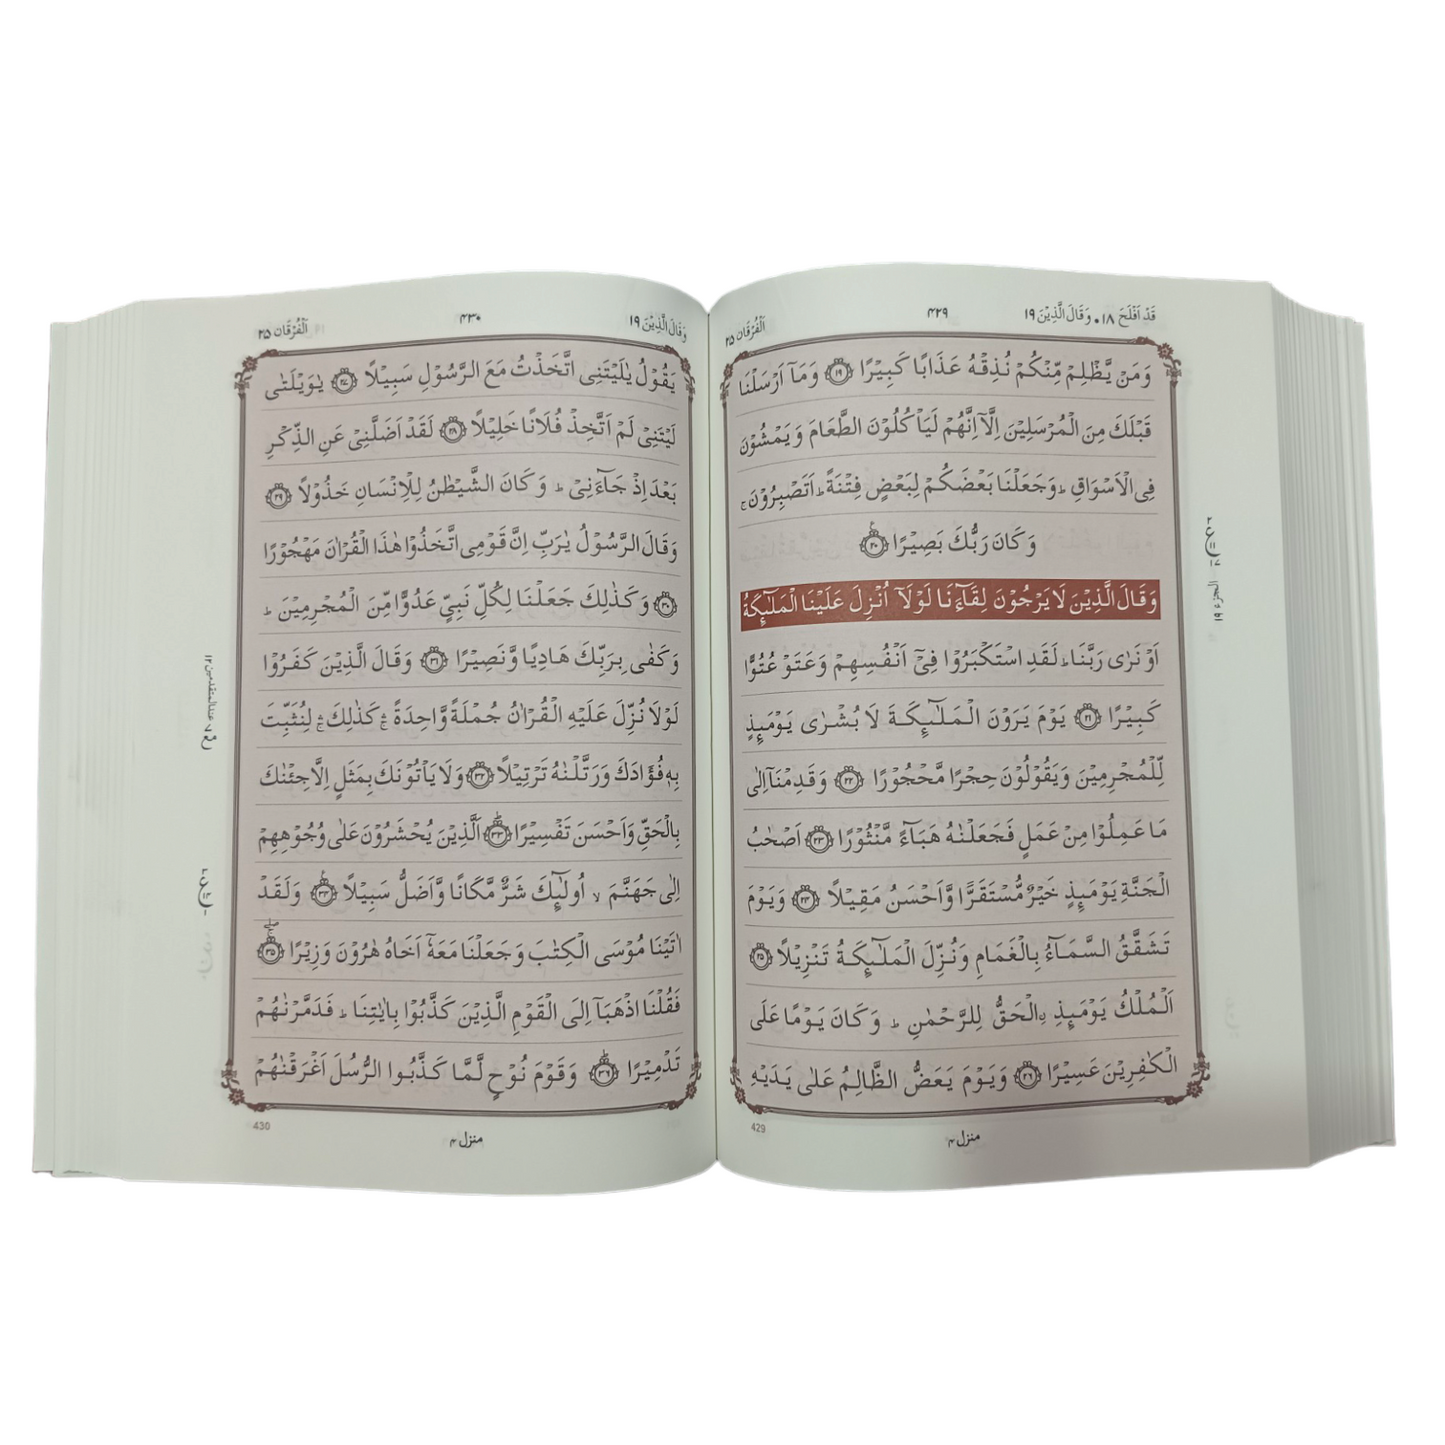 قَدۡ اَفۡلَحَ ۱۸ ۰ وَقَالَ الَّذِیۡنَ ۱۹
۴۲۹
اَلۡفُرۡقَان ۲۵
وَمَنۡ يَّظۡلِمۡ مِّنۡكُمۡ نُذِقۡهُ عَذَابًا كَبِيۡرًا ﴿۱۹﴾ وَمَاۤ اَرۡسَلۡنَا
قَبۡلَكَ مِنَ الۡمُرۡسَلِيۡنَ اِلَّاۤ اِنَّهُمۡ لَيَاۡكُلُوۡنَ الطَّعَامَ وَيَمۡشُوۡنَ
فِى الۡاَسۡوَاقِ ؕ وَجَعَلۡنَا بَعۡضَكُمۡ لِبَعۡضٍ فِتۡنَةً ؕ اَتَصۡبِرُوۡنَ ۚ
وَكَانَ رَبُّكَ بَصِيۡرًا ﴿۲۰﴾
وَقَالَ الَّذِيۡنَ لَا يَرۡجُوۡنَ لِقَآءَنَا لَوۡلَاۤ اُنۡزِلَ عَلَيۡنَا الۡمَلٰٓٮِٕكَةُ
اَوۡ نَرٰى رَبَّنَا ؕ لَقَدِ اسۡتَكۡبَرُوۡا فِىۡۤ اَنۡفُسِهِمۡ وَعَتَوۡ عُتُوًّا
كَبِيۡرًا ﴿۲۱﴾ يَوۡمَ يَرَوۡنَ الۡمَلٰٓٮِٕكَةَ لَا بُشۡرٰى يَوۡمَٮِٕذٍ
لِّلۡمُجۡرِمِيۡنَ وَيَقُوۡلُوۡنَ حِجۡرًا مَّحۡجُوۡرًا ﴿۲۲﴾ وَقَدِمۡنَاۤ اِلٰى
مَا عَمِلُوۡا مِنۡ عَمَلٍ فَجَعَلۡنٰهُ هَبَآءً مَّنۡثُوۡرًا ﴿۲۳﴾ اَصۡحٰبُ
الۡجَنَّةِ يَوۡمَٮِٕذٍ خَيۡرٌ مُّسۡتَقَرًّا وَّاَحۡسَنُ مَقِيۡلًا ﴿۲۴﴾ وَيَوۡمَ
تَشَقَّقُ السَّمَآءُ بِالۡغَمَامِ وَنُزِّلَ الۡمَلٰٓٮِٕكَةُ تَنۡزِيۡلًا ﴿۲۵﴾
اَلۡمُلۡكُ يَوۡمَٮِٕذِ ۨالۡحَقُّ لِلرَّحۡمٰنِ ؕ وَكَانَ يَوۡمًا عَلَى
الۡكٰفِرِيۡنَ عَسِيۡرًا ﴿۲۶﴾ وَيَوۡمَ يَعَضُّ الظَّالِمُ عَلٰى يَدَيۡهِ
الجزء ۱۹
منزل ۴
429
وَقَالَ الَّذِیۡنَ ۱۹
۴۳۰
اَلۡفُرۡقَان ۲۵
يَقُوۡلُ يٰلَيۡتَنِى اتَّخَذۡتُ مَعَ الرَّسُوۡلِ سَبِيۡلًا ﴿۲۷﴾ يٰوَيۡلَتٰى
لَيۡتَنِىۡ لَمۡ اَتَّخِذۡ فُلَانًا خَلِيۡلًا ﴿۲۸﴾ لَقَدۡ اَضَلَّنِىۡ عَنِ الذِّكۡرِ
بَعۡدَ اِذۡ جَآءَنِىۡ ؕ وَكَانَ الشَّيۡطٰنُ لِلۡاِنۡسَانِ خَذُوۡلًا ﴿۲۹﴾
وَقَالَ الرَّسُوۡلُ يٰرَبِّ اِنَّ قَوۡمِى اتَّخَذُوۡا هٰذَا الۡقُرۡاٰنَ مَهۡجُوۡرًا
﴿۳۰﴾ وَكَذٰلِكَ جَعَلۡنَا لِكُلِّ نَبِىٍّ عَدُوًّا مِّنَ الۡمُجۡرِمِيۡنَ ؕ
وَكَفٰى بِرَبِّكَ هَادِيًا وَّنَصِيۡرًا ﴿۳۱﴾ وَقَالَ الَّذِيۡنَ كَفَرُوۡا
لَوۡلَا نُزِّلَ عَلَيۡهِ الۡقُرۡاٰنُ جُمۡلَةً وَّاحِدَةً ۛۚ كَذٰلِكَ ۛۚ لِنُثَبِّتَ
بِهٖ فُؤَادَكَ وَرَتَّلۡنٰهُ تَرۡتِيۡلًا ﴿۳۲﴾ وَلَا يَاۡتُوۡنَكَ بِمَثَلٍ اِلَّا جِئۡنٰكَ
بِالۡحَقِّ وَاَحۡسَنَ تَفۡسِيۡرًا ﴿۳۳﴾ اَلَّذِيۡنَ يُحۡشَرُوۡنَ عَلٰى وُجُوۡهِهِمۡ
اِلٰى جَهَنَّمَ ۙ اُولٰٓٮِٕكَ شَرٌّ مَّكَانًا وَّاَضَلُّ سَبِيۡلًا ﴿۳۴﴾ وَلَقَدۡ
اٰتَيۡنَا مُوۡسَى الۡكِتٰبَ وَجَعَلۡنَا مَعَهٗۤ اَخَاهُ هٰرُوۡنَ وَزِيۡرًا ﴿۳۵﴾
فَقُلۡنَا اذۡهَبَاۤ اِلَى الۡقَوۡمِ الَّذِيۡنَ كَذَّبُوۡا بِاٰيٰتِنَا ؕ فَدَمَّرۡنٰهُمۡ
تَدۡمِيۡرًا ﴿۳۶﴾ وَقَوۡمَ نُوۡحٍ لَّمَّا كَذَّبُوا الرُّسُلَ اَغۡرَقۡنٰهُمۡ
منزل ۴
430